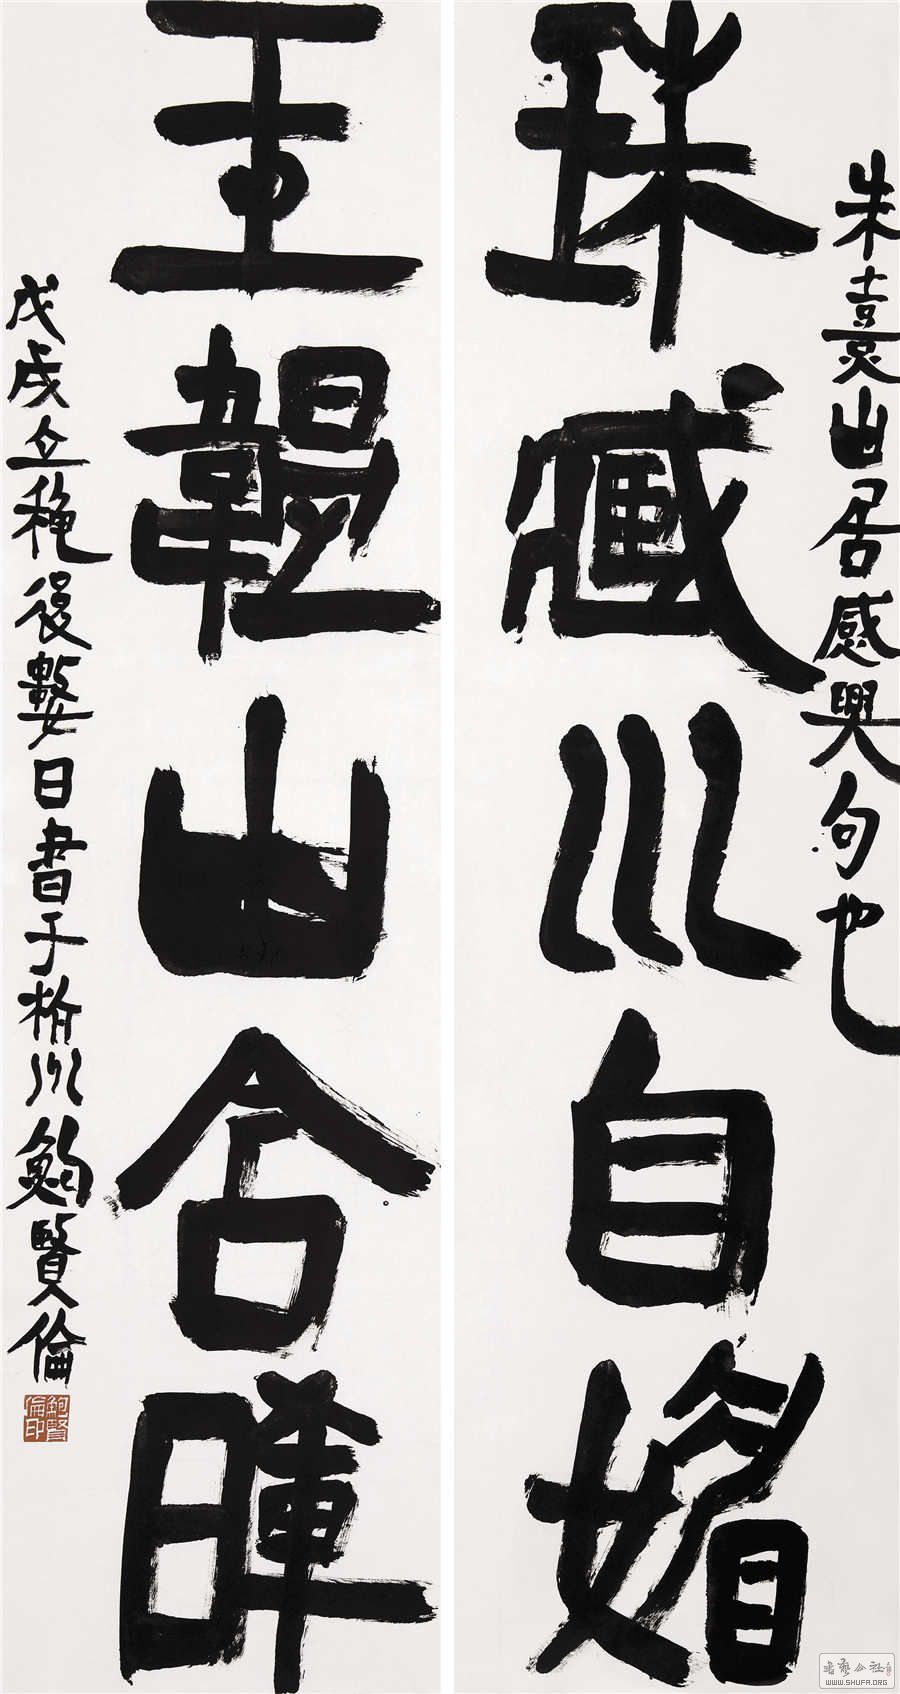 朱熹山居感興句也
珠臧川自媚
玉韞山含暉
戊戌立穐後數日書于鮑賢倫
鮑賢倫印
书艺公社
WWW.SHUFA.ORG